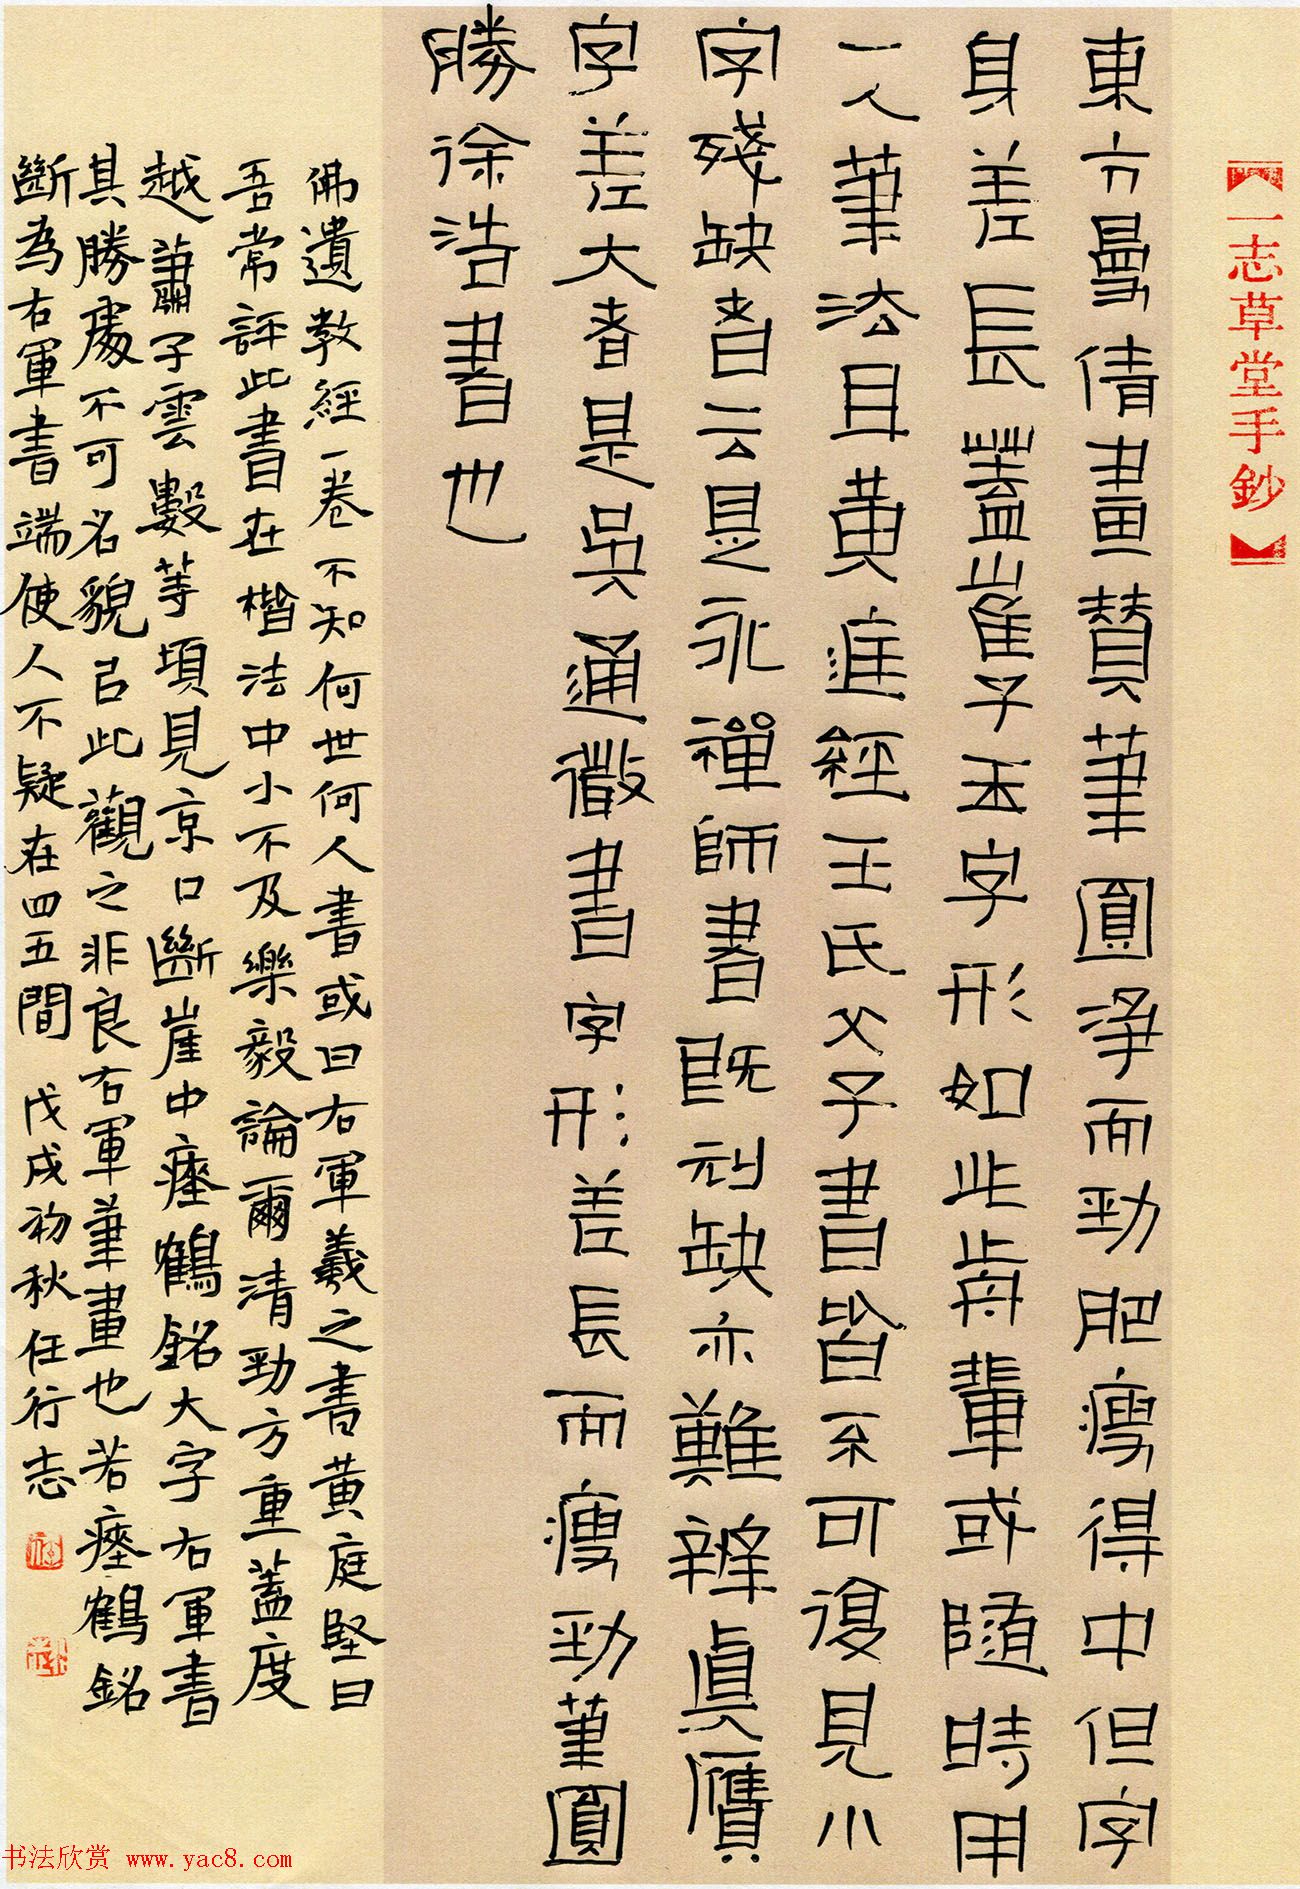 【一志草堂手鈔】
東方曼倩畫贊筆圓淨而勁肥瘦得中但字
身差長蓋崔子玉字形如此歬輩或隨時用
一人筆法耳黃庭經王氏父子書皆不可復見小
字殘缺者云是永禪師書既刓缺亦難辨真贗
字差大者是吳通微書字形差長而瘦勁筆圓
勝徐浩書也
佛遺教經一卷不知何世何人書或曰右軍羲之書黃庭堅曰
吾常評此書在楷法中小不及樂毅論爾清勁方重蓋度
越蕭子雲數等頃見京口斷崖中瘞鶴銘大字右軍書
其勝處不可名貌以此觀之非良右軍筆畫也若瘞鶴銘
斷為右軍書端使人不疑在四五間 戊戌初秋任行志
书法欣赏 www.yac8.com